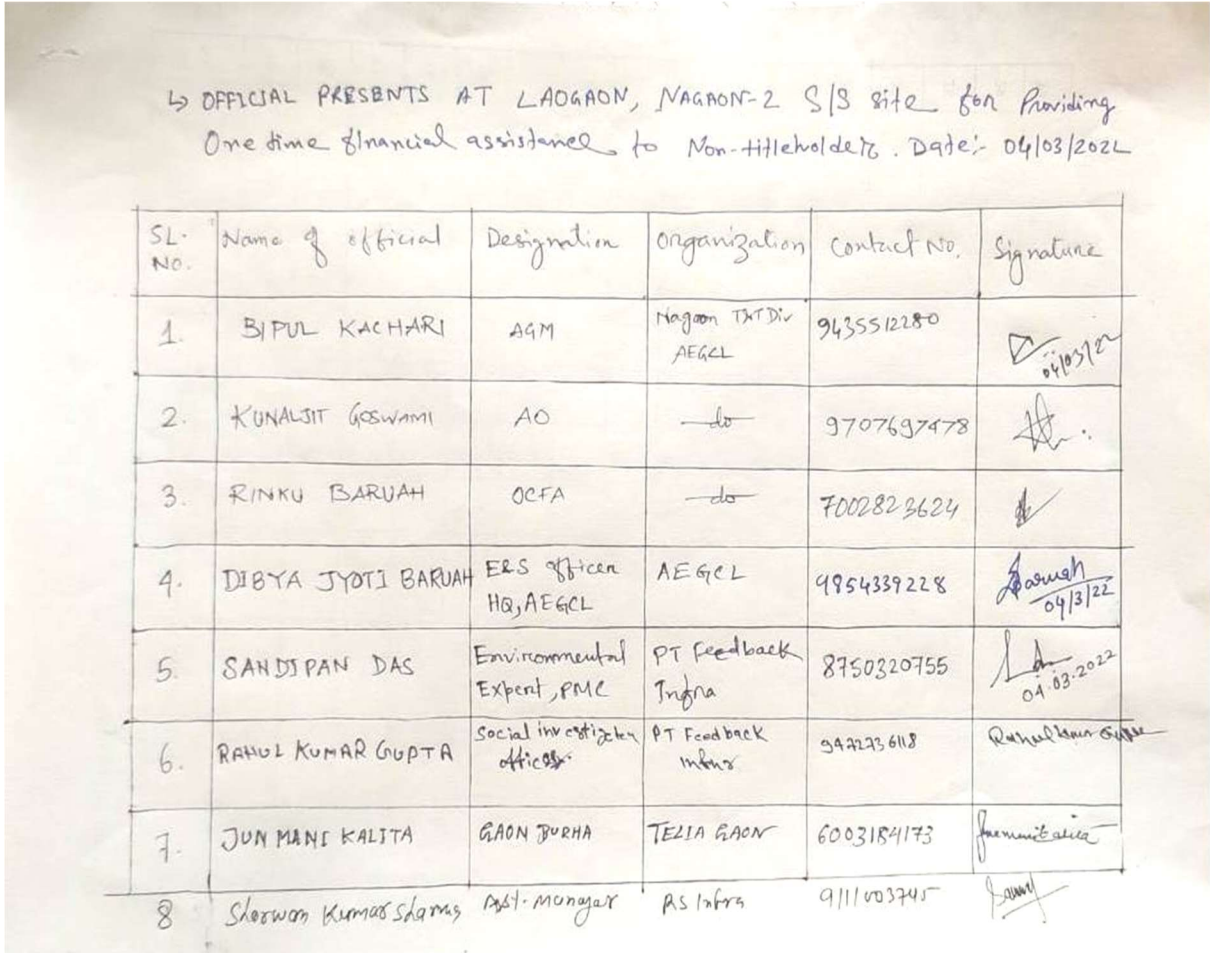 ↳ OFFICIAL PRESENTS AT LAOGAON, NAGAON-2 S/S site for Providing
One time financial assistance to Non-titleholders. Date:- 04/03/2022
SL. NO. Name of official Designation Organization Contact No. Signature
1. BIPUL KACHARI AGM Nagaon T&T Div AEGCL 9435512280 04/03/22
2. KUNALJIT GOSWAMI AO do 9707697478
3. RINKU BARUAH OCFA do 7002823624
4. DIBYA JYOTI BARUAH E&S officer HQ, AEGCL AEGCL 9854339228 Baruah 04/3/22
5. SANDIPAN DAS Environmental Expert, PMC PT Feedback Infra 8750320755 04.03.2022
6. RAHUL KUMAR GUPTA Social investigation officer PT Feedback infra 9472736118 Rahul Kumar Gupta
7. JUN MANI KALITA GAON BURHA TELIA GAON 6003184173 Junmani Kalita
8 Kumar Asst. Manager RS Infra 9111003745